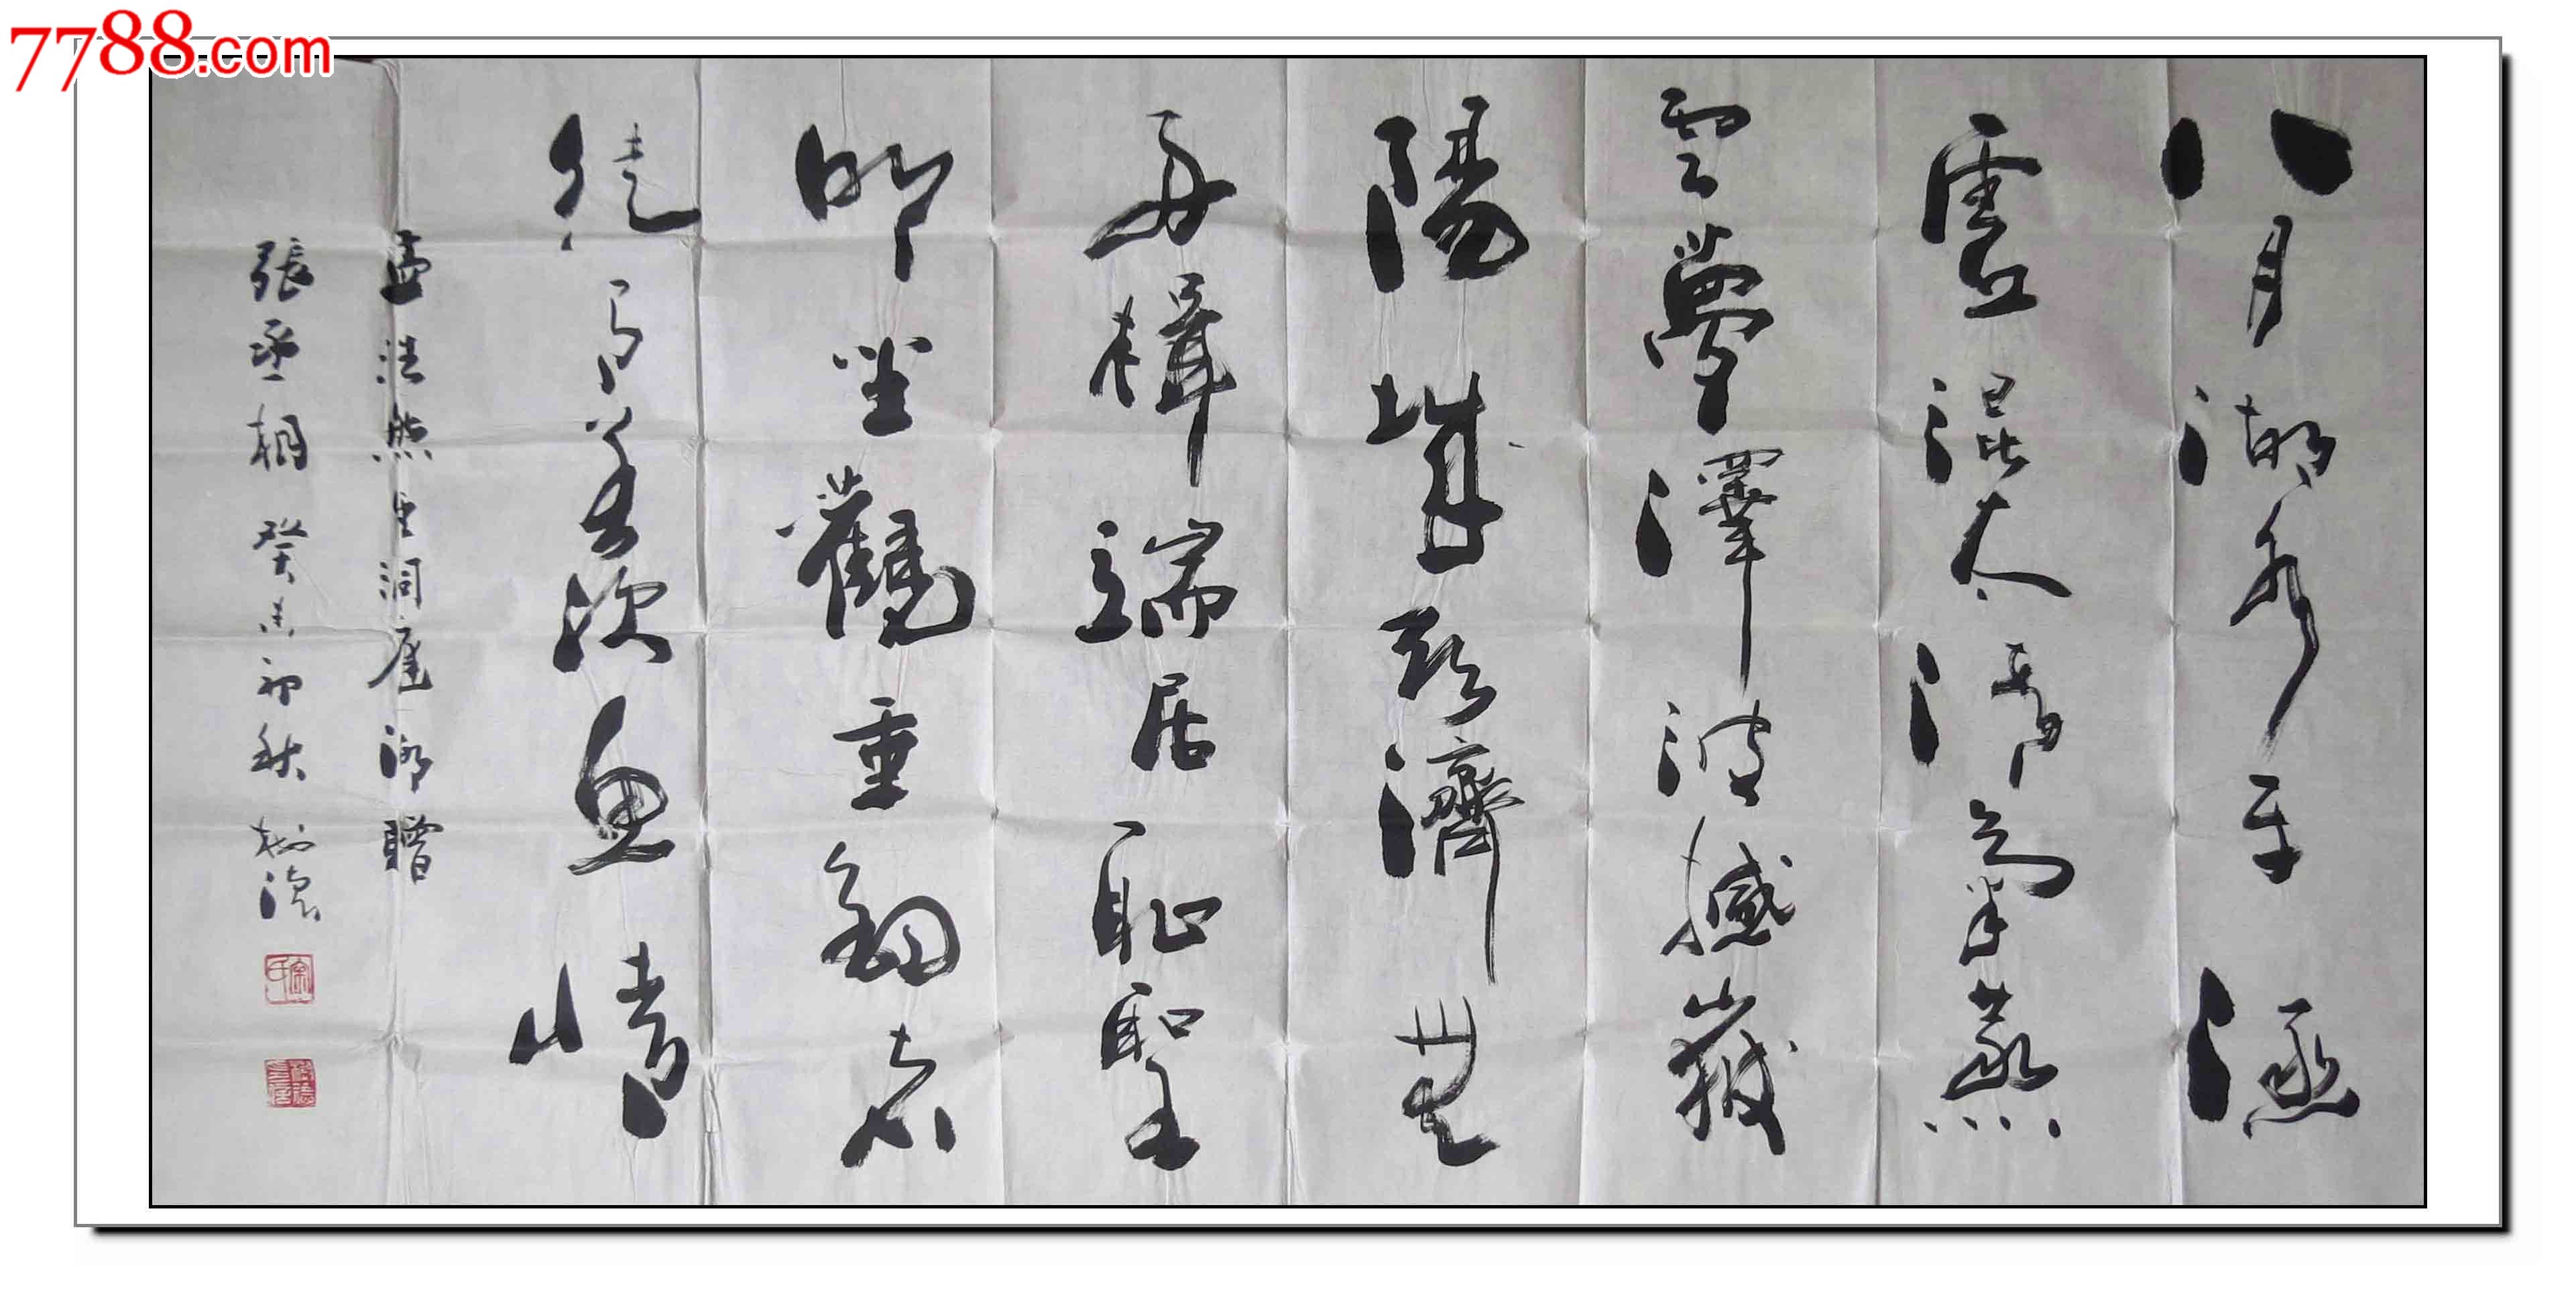 7788.com
八月湖水平涵
虛混太清氣蒸
雲夢澤波撼嶽
陽城欲濟無
舟楫端居恥聖
明坐觀垂釣者
徒有羨魚情
孟浩然洞庭湖贈
張丞相 癸未初秋